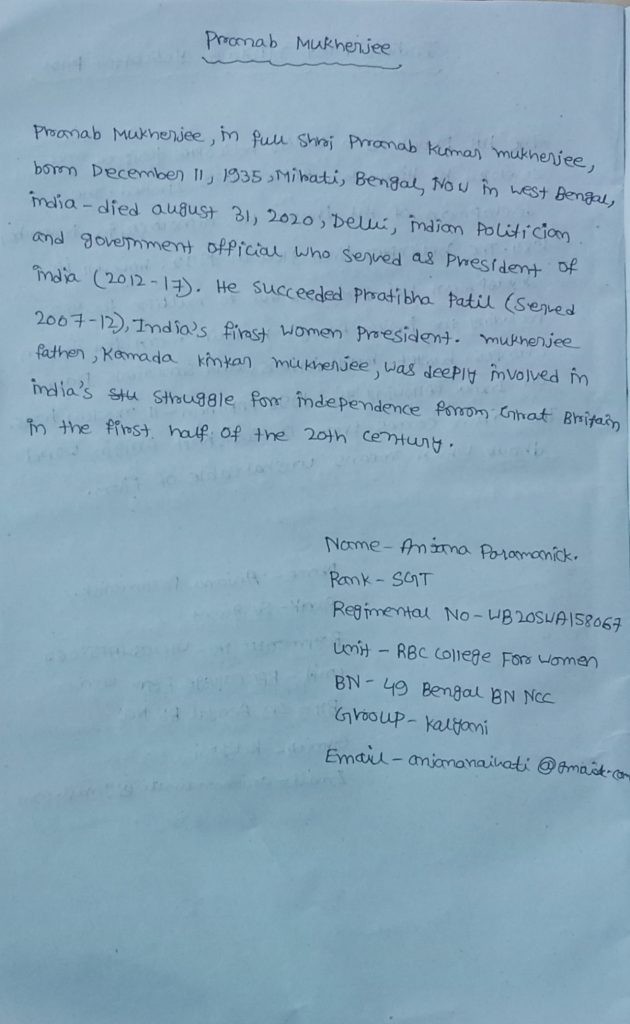 Pranab Mukherjee
Pranab Mukherjee, in full Shri Pranab Kumar mukherjee,
born December 11, 1935, Mirati, Bengal, Now in west Bengal,
india - died august 31, 2020, Delhi, indian Politician
and government official who served as President of
india (2012-17). He succeeded Pratibha Patil (served
2007-12), India's first women President. mukherjee
father, Kamada kinkar mukherjee, was deeply involved in
india's stu struggle for independence from Great Britain
in the first half of the 20th century.
Name - Anjana Paramanick.
Rank - SGT
Regimental No - WB20SWA158067
Unit - RBC College For women
BN - 49 Bengal BN NCC
Group - Kalyani
Email - anjananaihati @gmail.com